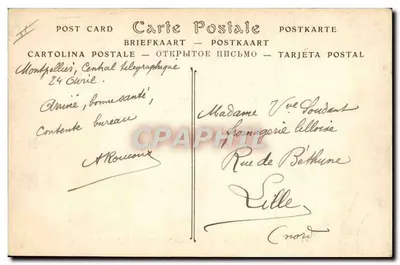 POST CARD Carte Postale POSTKARTE
BRIEFKAART — POSTKAART
CARTOLINA POSTALE — ОТКРЫТОЕ ПИСЬМО — TARJETA POSTAL
Montpellier, Central télégraphique
24 Avril.
Arrivé, bonne santé,
contente bureau
Madame Vve Soudant
fromagerie lilloise
Rue de Béthune
Lille
(nord)
CPAPHIL